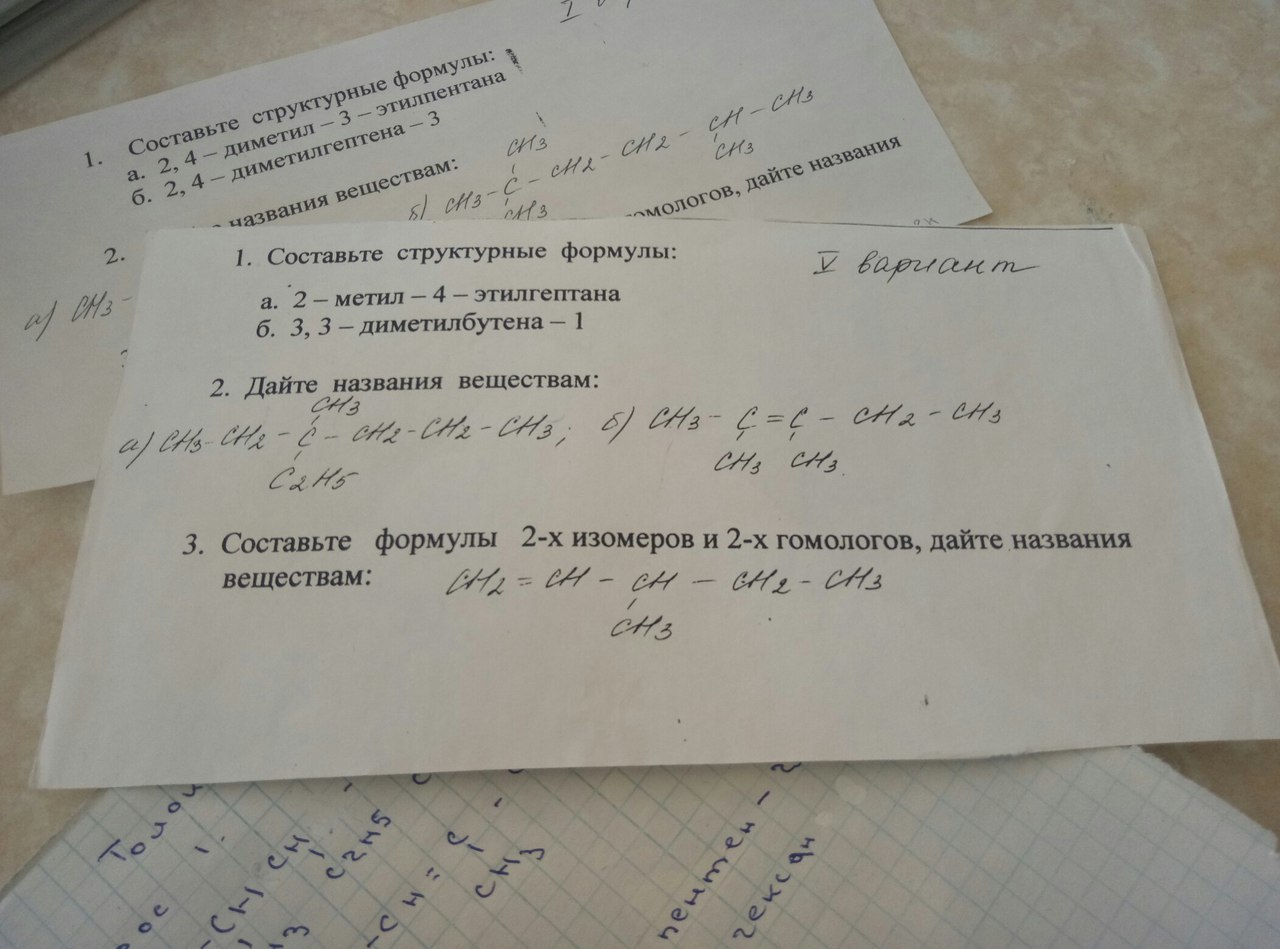 I
1. Составьте структурные формулы:
а. 2, 4 – диметил – 3 – этилпентана
б. 2, 4 – диметилгептена – 3
2. названия веществам:
CH3
б) CH3 – C – CH2 – CH2 – CH – CH3
CH3 CH3
гомологов, дайте названия
а) CH3 –
V вариант
1. Составьте структурные формулы:
а. 2 – метил – 4 – этилгептана
б. 3, 3 – диметилбутена – 1
2. Дайте названия веществам:
CH3
а) CH3 – CH2 – C – CH2 – CH2 – CH3; б) CH3 – C = C – CH2 – CH3
C2H5 CH3 CH3
3. Составьте формулы 2-х изомеров и 2-х гомологов, дайте названия
веществам: CH2 = CH – CH – CH2 – CH3
CH3
CH
C2H5
– CH = C
CH3
пентен – 2
гексан